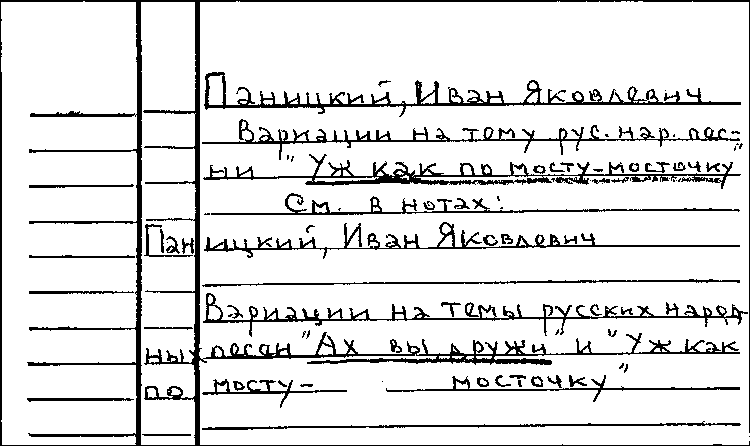 Паницкий, Иван Яковлевич
Вариации на тему рус. нар. пес-
ни "Уж как по мосту-мосточку"
См. в нотах:
Паницкий, Иван Яковлевич
Вариации на темы русских народ-
ных песен "Ах вы дружи" и "Уж как
по мосту- мосточку".